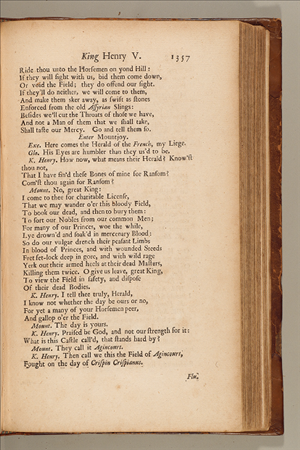 King Henry V. 1337
Ride thou unto the Horsemen on yond Hill:
If they will fight with us, bid them come down,
Or void the Field; they do offend our sight.
If they'll do neither, we will come to them,
And make them sker away, as swift as stones
Enforced from the old Assyrian Slings:
Besides we'll cut the Throats of those we have,
And not a Man of them that we shall take,
Shall taste our Mercy. Go and tell them so.
Enter Mountjoy.
Exe. Here comes the Herald of the French, my Liege.
Glo. His Eyes are humbler than they us'd to be.
K. Henry. How now, what means their Herald? Know'st
thou not,
That I have fin'd these Bones of mine for Ransom?
Com'st thou again for Ransom?
Mount. No, great King:
I come to thee for charitable License,
That we may wander o'er this bloody Field,
To book our dead, and then to bury them:
To sort our Nobles from our common Men;
For many of our Princes, woe the while,
Lye drown'd and soak'd in mercenary Blood:
So do our vulgar drench their peasant Limbs
In blood of Princes, and with wounded Steeds
Fret fet-lock deep in gore, and with wild rage
Yerk out their armed heels at their dead Masters,
Killing them twice. O give us leave, great King,
To view the Field in safety, and dispose
Of their dead Bodies.
K. Henry. I tell thee truly, Herald,
I know not whether the day be ours or no,
For yet a many of your Horsemen peer,
And gallop o'er the Field.
Mount. The day is yours.
K. Henry. Praised be God, and not our strength for it:
What is this Castle call'd, that stands hard by?
Mount. They call it Agincourt.
K. Henry. Then call we this the Field of Agincourt,
Fought on the day of Crispin Crispianus.
Flu.